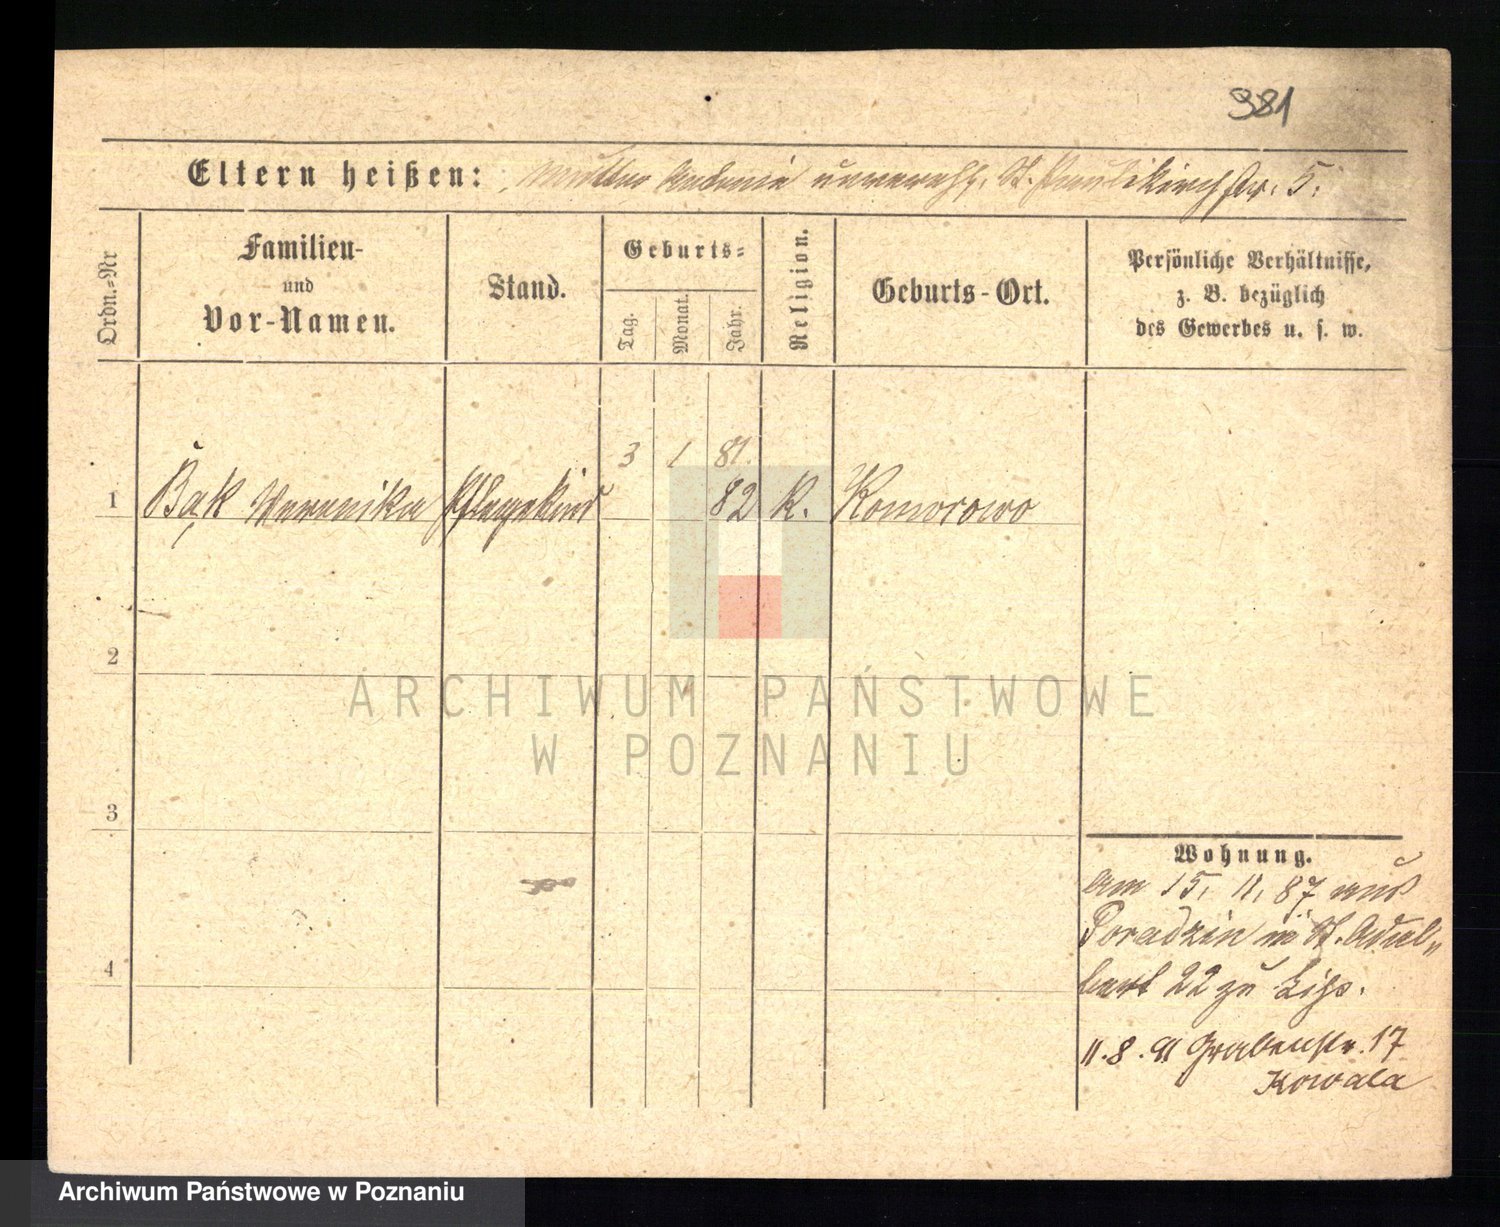 381
Eltern heißen: Mutter Antonie unverehl. St. Paulikirchstr. 5.
Ordn.-Nr
Familien- und Vor-Namen.
Stand.
Geburts=
Tag.
Monat.
Jahr.
Religion.
Geburts-Ort.
Persönliche Verhältnisse,
z. B. bezüglich
des Gewerbes u. s. w.
3 1 81.
1 Bąk Veronika Pflegekind 82 K. Komorowo
2
ARCHIWUM PAŃSTWOWE
W POZNANIU
3
4
Wohnung.
Am 15. 11. 87 aus
in St. Adal„
bert 22 zu
11. 8. 91 Grabenstr. 17
Kowala
Archiwum Państwowe w Poznaniu